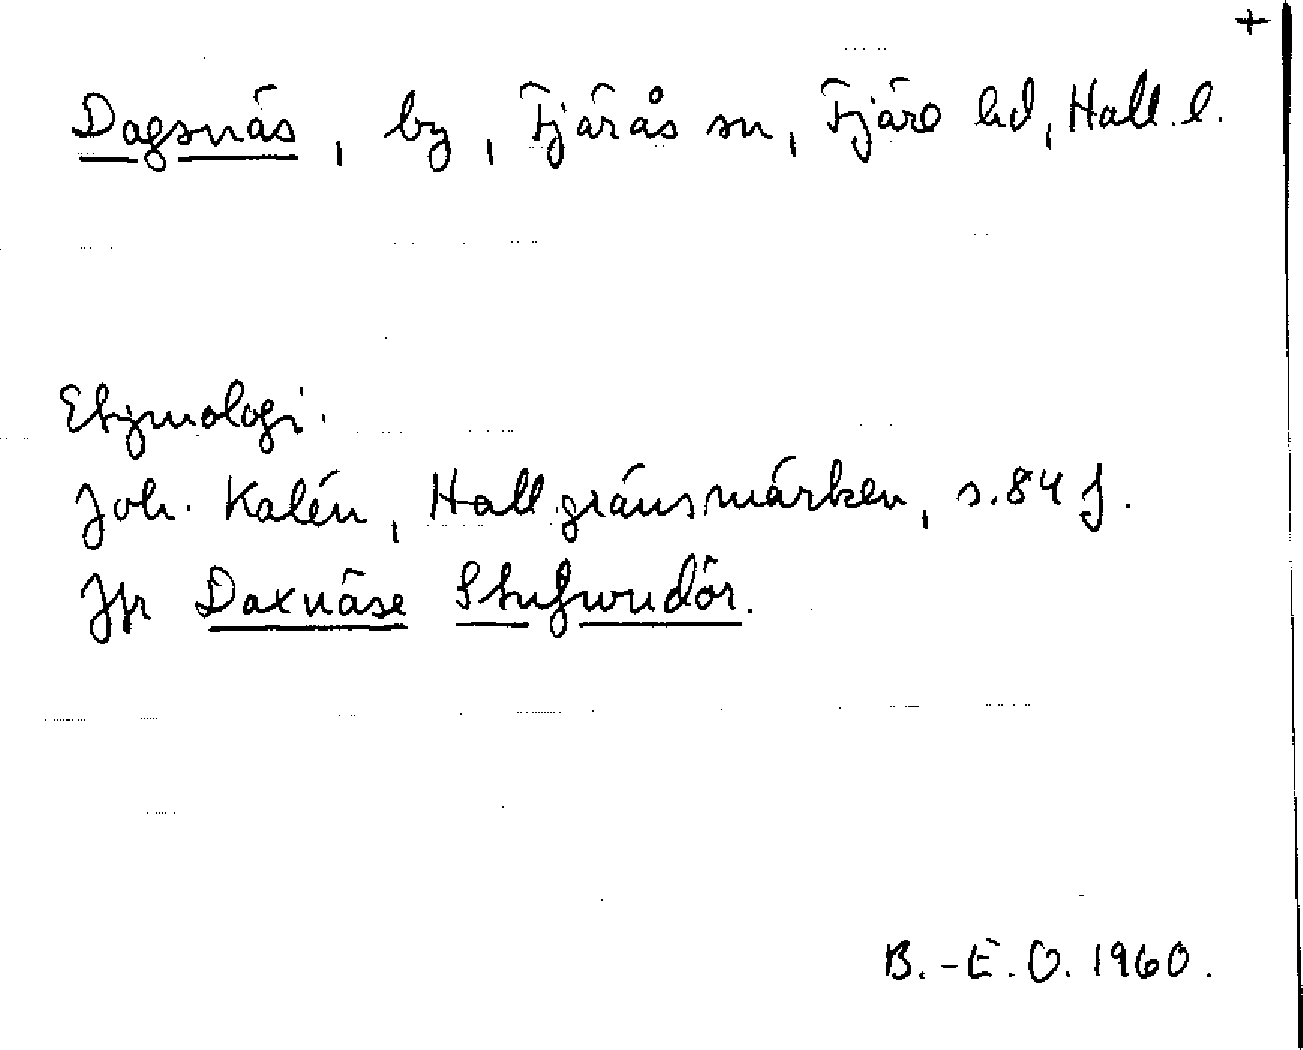 +
Dagsnäs, by, Fjärås sn, Fjäre hd, Hall. l.
Etymologi.
Joh. Kalén, Hall. gränsmärken, s. 84 f.
Jfr Daxnäse Stufwudör.
B.-E. O. 1960.